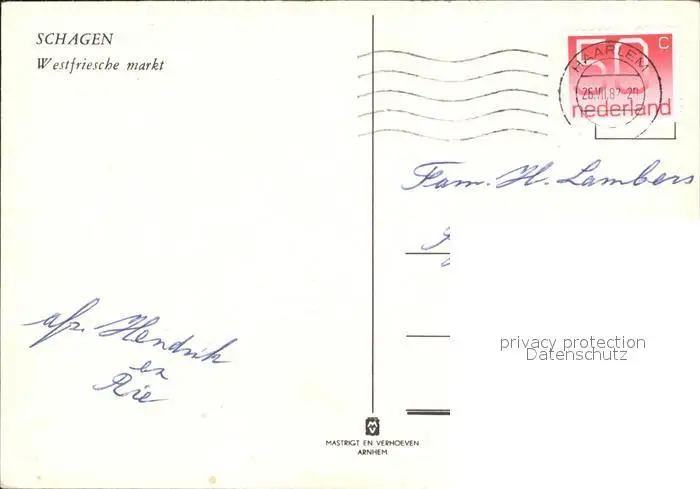 SCHAGEN
Westfriesche markt
HAARLEM
50 C
26.VII.82
nederland
Fam. H. Lambers
afz. Hendrik
en
Rie
privacy protection
Datenschutz
MASTRIGT EN VERHOEVEN
ARNHEM